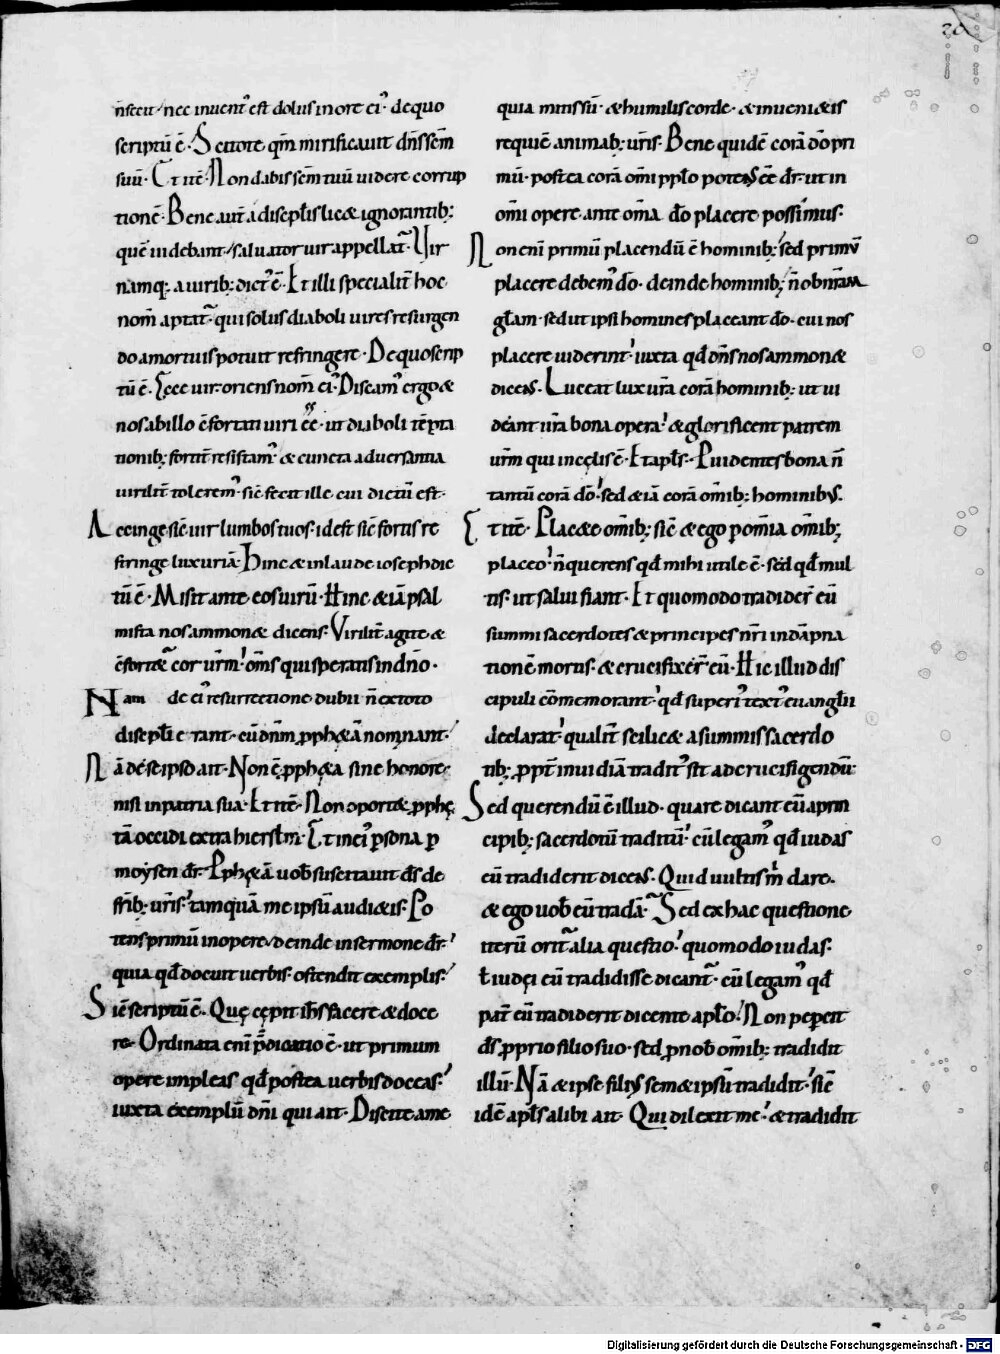 n̄ fecit / nec invent᾽ est dolus in ore ei᾽. de quo
scriptū ē. Scitote qm̄ mirificavit dn̄s sc̄m
suū. Et itē. Non dabis sc̄m tuū videre corrup
tionē. Bene aut̄ a discipl̄is lic& ignorantib;
quē videbant / salvator vir appellat᾽. Vir
namq; a virib; dict᾽ ē. Et illi specialit̄ hoc
nom̄ aptat᾽. qui solus diaboli vires resurgen
do a mortuis potuit refringere. De quo scrip
tū ē. Ecce vir oriens nom̄ ei᾽. Discam᾽ ergo &
nos ab illo c̄fortati viri ēē. ut diaboli tēpta
tionib; fortit̄ resistam᾽. & cuncta adversantia
virilit̄ tolerem᾽. sic̄ fecit ille cui dictū est.
Accinge sic̄ vir lumbos tuos. id est sic̄ fortis re
stringe luxuriā. Hinc & in laude ioseph dic
tū ē. Misit ante eos virū. Hinc & iā psal
mista nos ammon& dicens. Virilit̄ agite &
c̄fort&᾽ cor vr̄m. om̄s qui speratis in dn̄o.
Nam de ei᾽ resurrectione dubii n̄ ex toto
discipl̄i erant. cū dn̄m, pph&ā nominant.
Nā de se ipso ait. Non ē, pph&a sine honore.
nisi in patria sua. Et itē. Non oport&, pphę
tā occidi extra hiersl̄m. Et in ei᾽ psona p
moysen dr̄. Pph&ā vob̄ suscitavit ds̄ de
fr̄ib; vr̄is. tamquā me ipsū audi&is. Po
tens primū in opere / deinde in sermone dr̄.
quia qd̄ docuit verbis. ostendit exemplis.
Sic̄ scriptū ē. Quę cępit ih̄s facere & doce
re. Ordinata eni p̄dicatio ē. ut primum
opere impleas qd̄ postea verbis doceas.
iuxta exemplū dn̄i qui ait. Discite a me
quia mitis sū. & humilis corde. & inveni&is
requiē animab; vr̄is. Bene quidē corā do᷒ pri
mū. postea corā om̄i pplo potens ēē dr̄. ut in
om̄i opere ante om̄a d̄o placere possimus.
Non eni primū placendū ē hominib; sed primū
placere debem᾽ d̄o. deinde hominib; n̄ ob nr̄am
gl̄am. sed ut ipsi homines placeant d̄o. cui nos
placere viderint. iuxta qd̄ dn̄s nos ammon&
dicens. Luceat lux vr̄a corā hominib; ut vi
deant vr̄a bona opera. & glorificent patrem
vr̄m qui in cęlis ē. Et apl̄s. Providentes bona n̄
tantū corā d̄o. sed & iā corā om̄ib; hominibus.
Et itē. Plac&e om̄ib; sic̄ & ego p om̄ia om̄ib;
placeo. n̄ querens qd̄ mihi utile ē. sed qd̄ mul
tis. ut salvi fiant. Et quomodo tradider̄ eū
summi sacerdotes & principes nr̄i in dāpna
tionē mortis. & crucifixer̄ eū. Hic illud dis
cipuli cōmemorant. qd̄ superi᾽ text᾽ euanglii
declarat᾽. qualit̄ scilic& a summis sacerdo
tib;, ppt̄ invidiā tradit᾽ sit ad crucifigendū.
Sed querendū ē illud. quare dicant eū a prin
cipib; sacerdotū traditū. cū legam᾽ qd̄ iudas
eū tradiderit dicens. Quid vultis m dare.
& ego vob̄ eū tradā. Sed ex hac questione
iterū orit᾽ alia questio. quomodo iudas.
ł iudęi eū tradidisse dicant᾽. cū legam᾽ qd̄
pat̄ eū tradiderit dicente apl̄o. Non pepcit
ds̄, pprio filio suo. sed, p nob̄ om̄ib; tradidit
illū. Nā & ipse filius sem& ipsū tradidit. sic̄
idē apl̄s alibi ait. Qui dilexit me. & tradidit
Digitalisierung gefördert durch die Deutsche Forschungsgemeinschaft - DFG